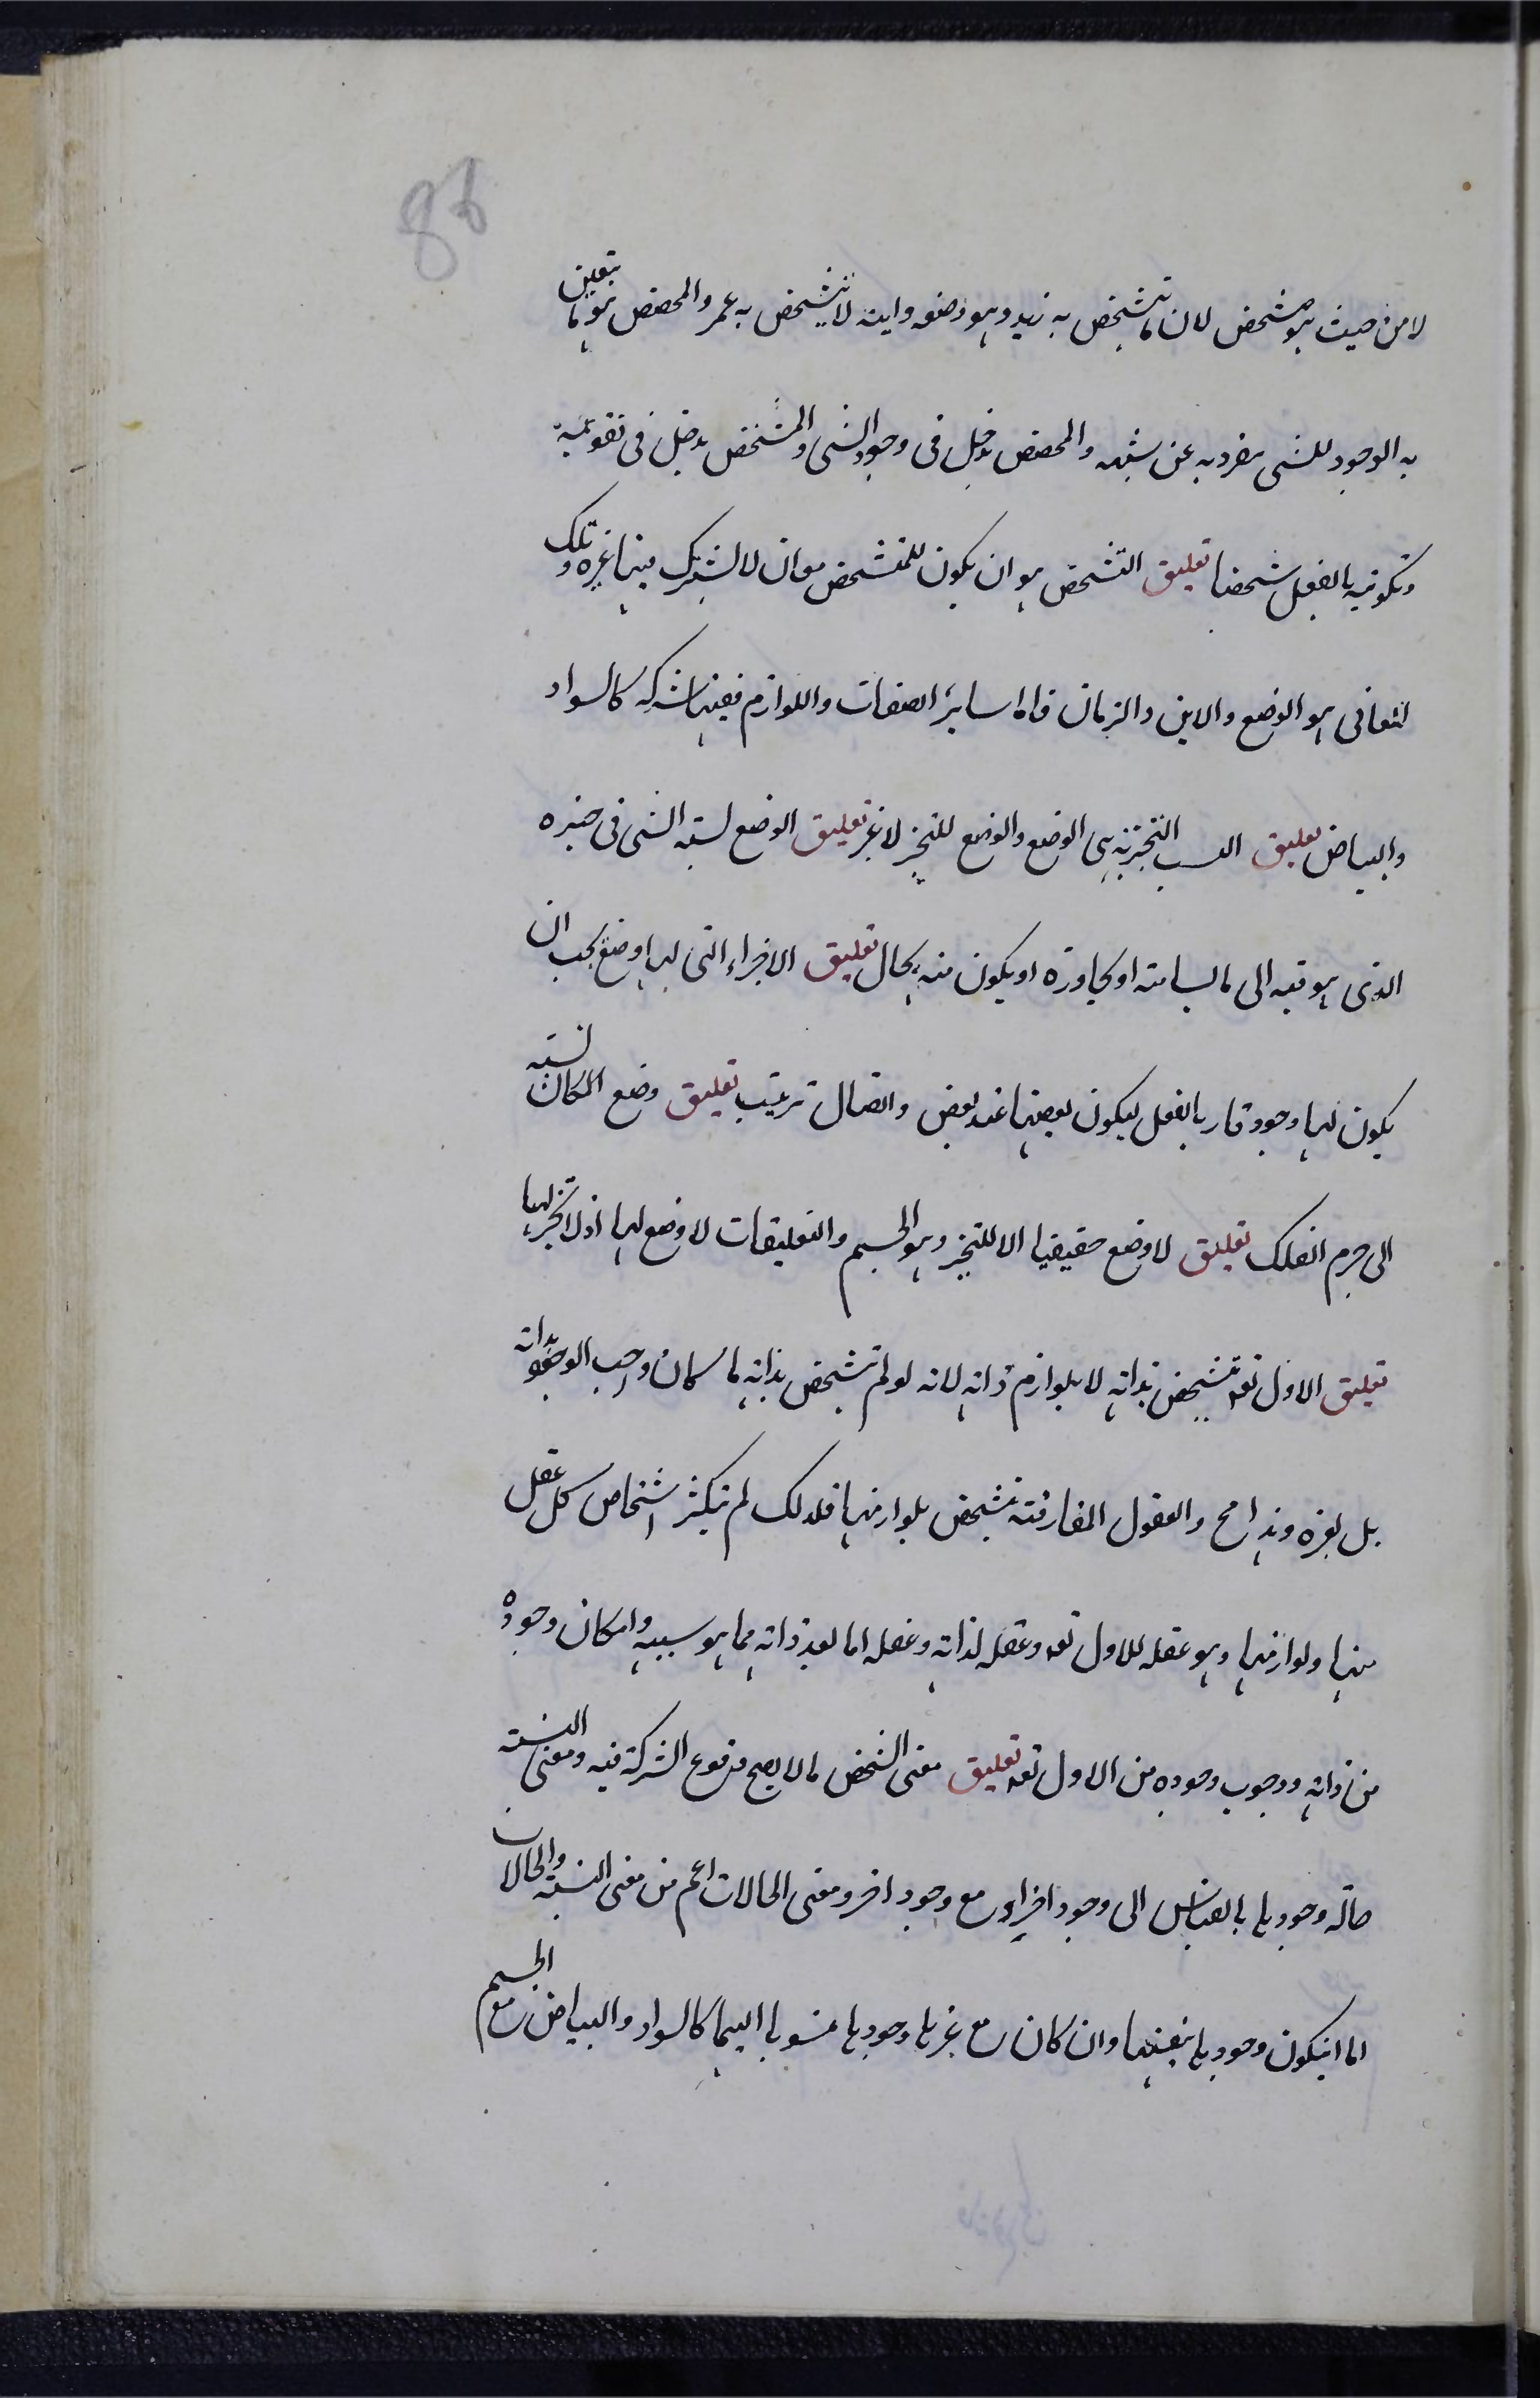 86
لا من حيث هو متشخص لان ما يتشخص به زيد وهو وضعه واينه لا يتشخص به عمر والمخصص هو ما يتعين
به الوجود للشى ينفرد به عن شبهه والمخصص يدخل فى وجود الشى والمشخص يدخل فى تقويمه
وتكوينه بالفعل شخصا تعليق التشخص هو ان يكون للمتشخص معان لا يشترك فيها غيره وتلك
المعانى هو الوضع والاين والزمان فاما ساير الصفات واللوازم ففيها شركه كالسواد
والبياض تعليق النسب التحيزيه هى الوضع والوضع للمتحيز لا غير تعليق الوضع نسبة الشى فى حيزه
الذى هو فيه الى ما يسامته او يجاوره او يكون منه بحال تعليق الاجزاء التى لها وضع يجب ان
يكون لها وجود قار بالفعل ليكون بعضها عند بعض واتصال ترتيب تعليق وضع المكان نسبته
الى جرم الفلك تعليق لا وضع حقيقيا الا للمتحيز وهو الجسم والتعليقات لا وضع لها اذ لا تحيز لها
تعليق الاول تعه يتشخص بذاته لا بلوازم ذاته لانه لو لم يتشخص بذاته لما كان واجب الوجود بذاته
بل بغيره وهذا مح والعقول المفارقة تتشخص بلوازمها فلذلك لم يتكثر اشخاص كل عقل
منها ولوازمها وهو عقله للاول تعه وعقله لذاته وعقله لما بعد ذاته مما هو سببه وامكان وجوده
من ذاته ووجوب وجوده من الاول تعه تعليق معنى الشخص ما لا يصح وقوع الشركة فيه ومعنى النسبة
حالة وجودها بالقياس الى وجود اخر او مع وجود اخر ومعنى الحالات اعم من معنى النسبة والحالات
اما ان يكون وجودها بنفسها وان كان مع غيرها وجودها منسوبا اليها كالسواد والبياض مع الجسم